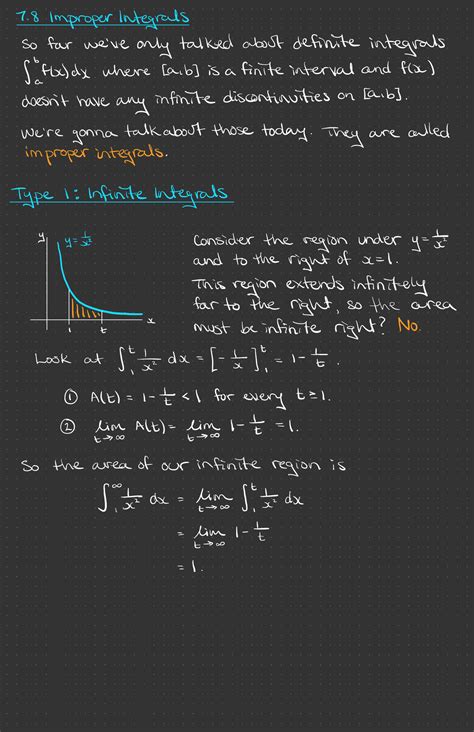 7.8 Improper Integrals
So far we've only talked about definite integrals
∫_a^b f(x)dx where [a,b] is a finite interval and f(x)
doesn't have any infinite discontinuities on [a,b].
We're gonna talk about those today. They are called
improper integrals.
Type 1: Infinite Integrals
y
y = 1/x²
1 t x
Consider the region under y = 1/x²
and to the right of x=1.
This region extends infinitely
far to the right, so the area
must be infinite right? No.
Look at ∫_1^t 1/x² dx = [-1/x]_1^t = 1 - 1/t.
① A(t) = 1 - 1/t < 1 for every t ≥ 1.
② lim_{t→∞} A(t) = lim_{t→∞} 1 - 1/t = 1.
So the area of our infinite region is
∫_1^∞ 1/x² dx = lim_{t→∞} ∫_1^t 1/x² dx
= lim_{t→∞} 1 - 1/t
= 1.